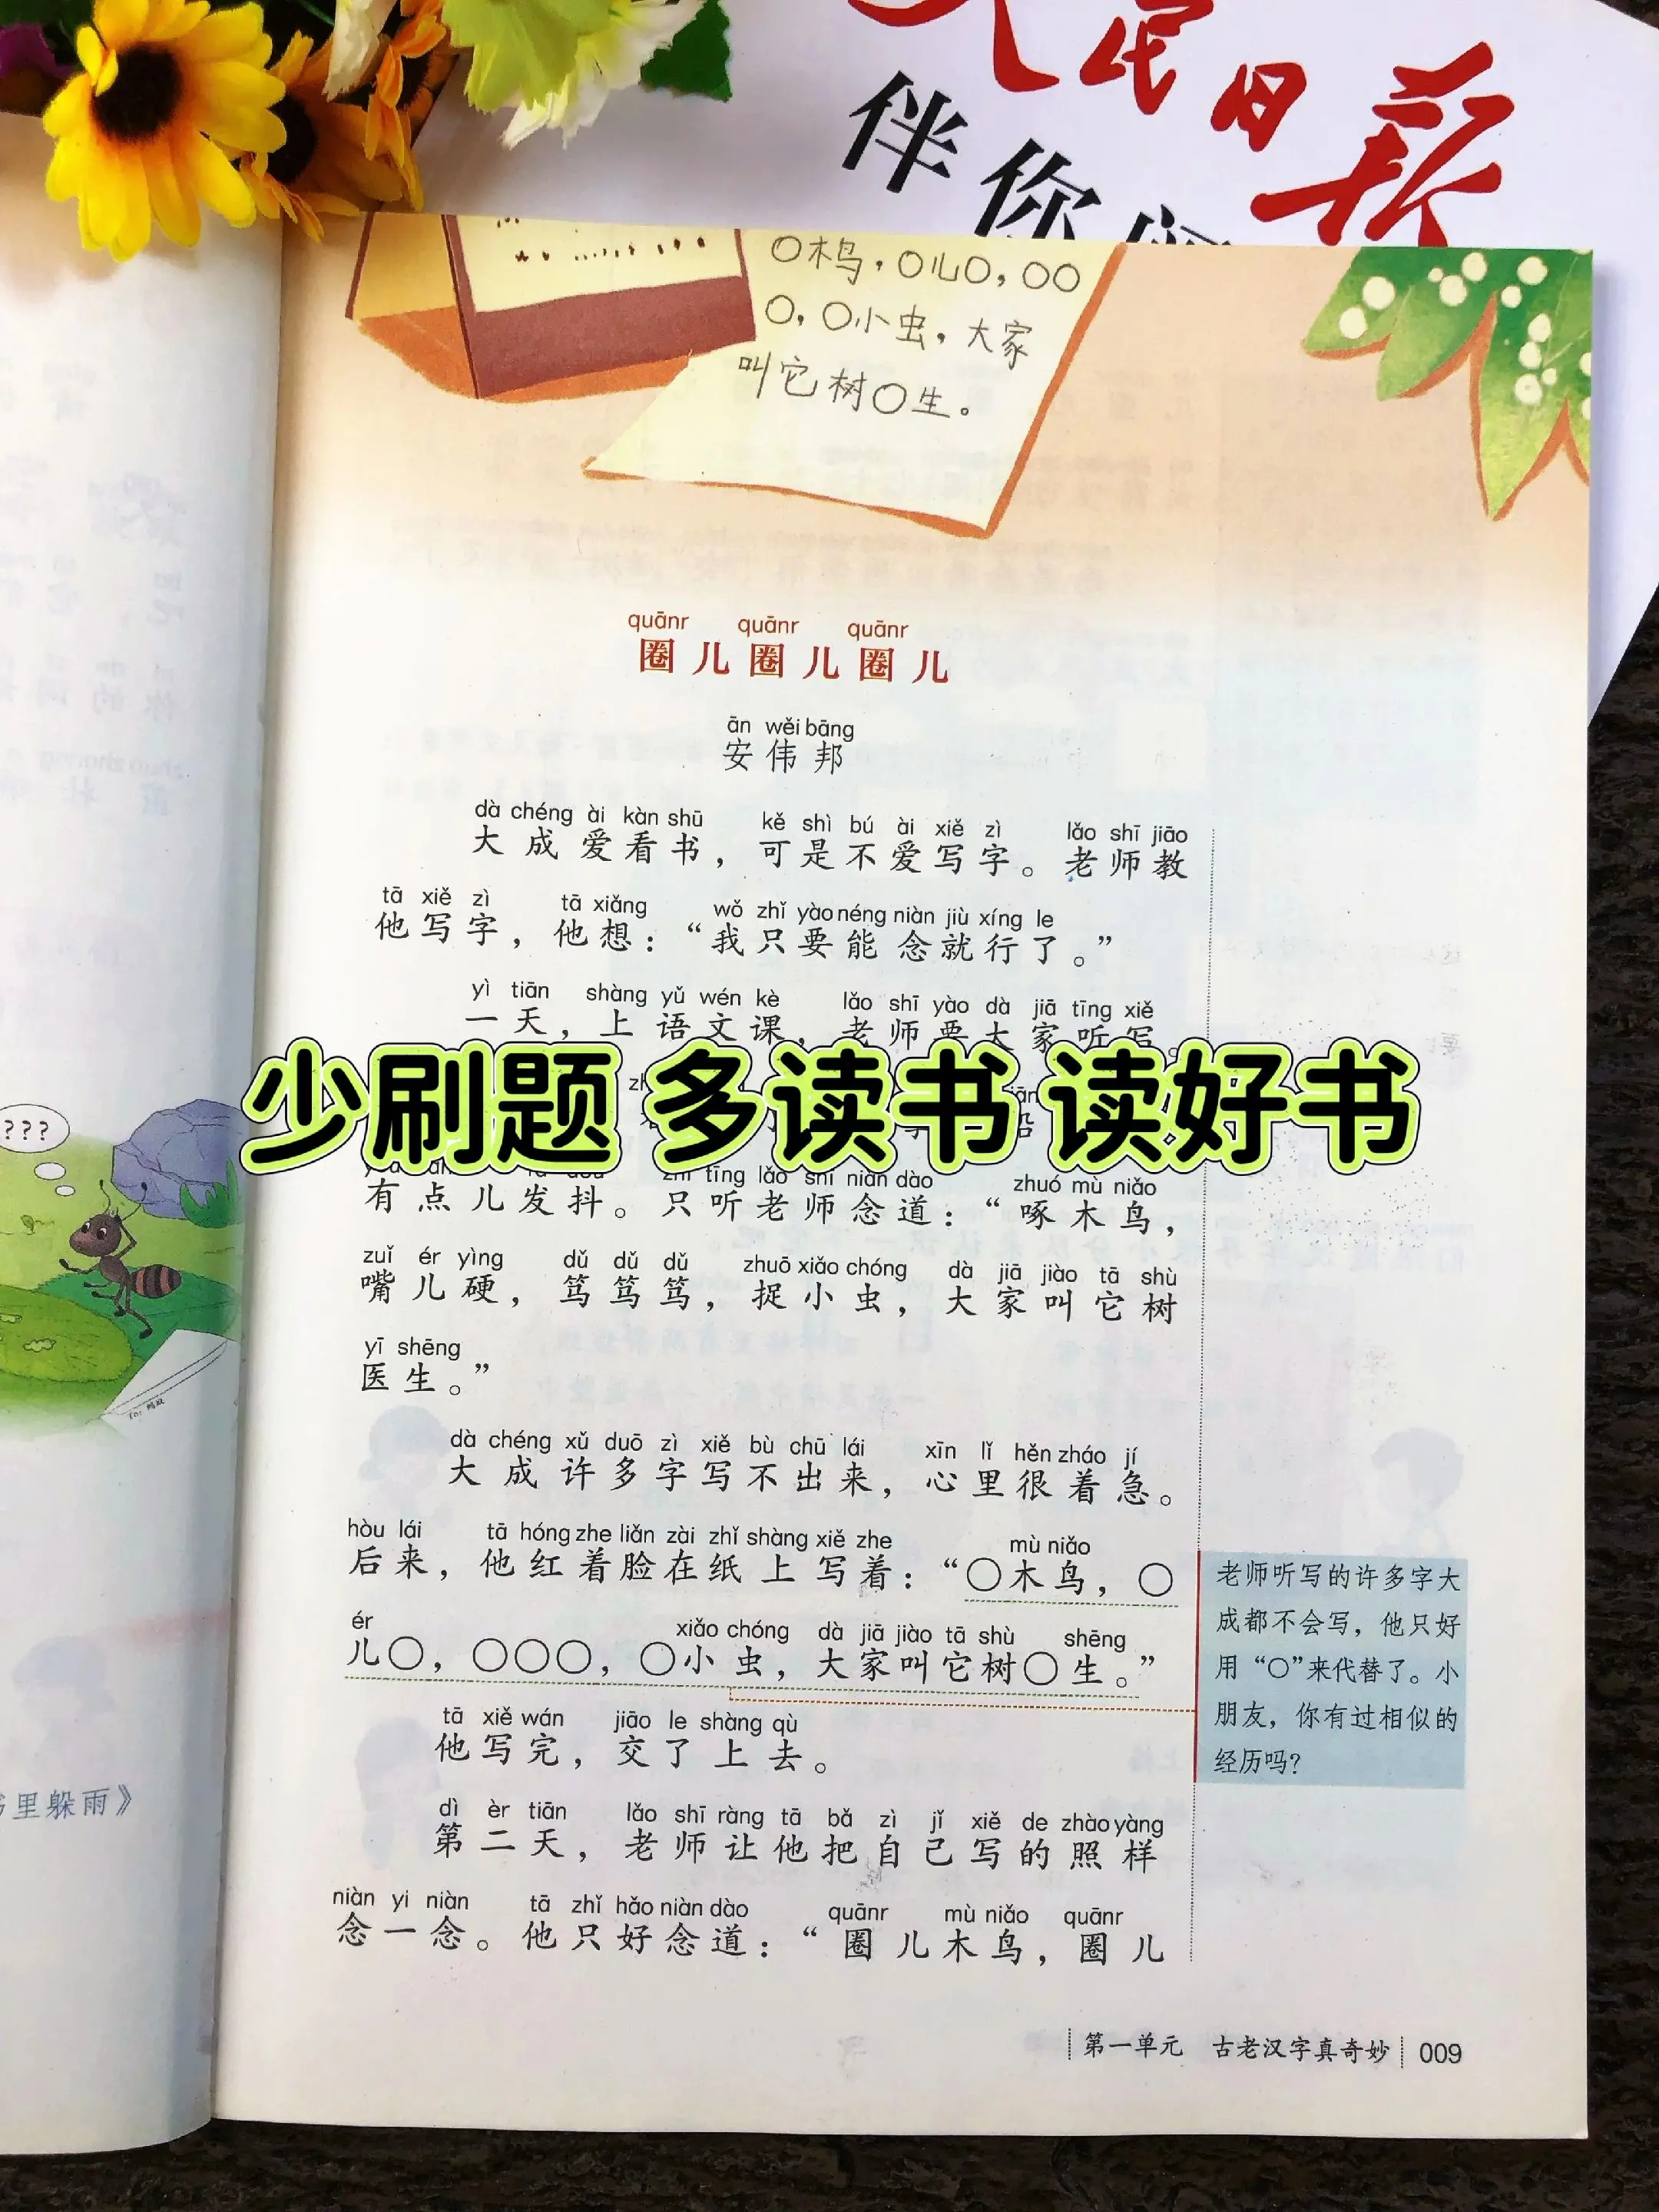 人民日报
伴你
〇木鸟，〇儿〇，〇〇
〇，〇小虫，大家
叫它树〇生。
quānr quānr quānr
圈儿圈儿圈儿
ān wěi bāng
安伟邦
dà chéng ài kàn shū kě shì bú ài xiě zì lǎo shī jiāo
大成爱看书，可是不爱写字。老师教
tā xiě zì tā xiǎng wǒ zhǐ yào néng niàn jiù xíng le
他写字，他想：“我只要能念就行了。”
yì tiān shàng yǔ wén kè lǎo shī yào dà jiā tīng xiě
一天，上语文课，老师要大家听写。
少刷题 多读书 读好书
有点儿发抖。只听老师念道：“啄木鸟，
zhǐ tīng lǎo shī niàn dào zhuó mù niǎo
zuǐ ér yìng dǔ dǔ dǔ zhuō xiǎo chóng dà jiā jiào tā shù
嘴儿硬，笃笃笃，捉小虫，大家叫它树
yī shēng
医生。”
dà chéng xǔ duō zì xiě bù chū lái xīn lǐ hěn zháo jí
大成许多字写不出来，心里很着急。
hòu lái tā hóng zhe liǎn zài zhǐ shàng xiě zhe mù niǎo
后来，他红着脸在纸上写着：“〇木鸟，〇
ér xiǎo chóng dà jiā jiào tā shù shēng
儿〇，〇〇〇，〇小虫，大家叫它树〇生。”
tā xiě wán jiāo le shàng qù
他写完，交了上去。
dì èr tiān lǎo shī ràng tā bǎ zì jǐ xiě de zhào yàng
第二天，老师让他把自己写的照样
niàn yi niàn tā zhǐ hǎo niàn dào quānr mù niǎo quānr
念一念。他只好念道：“圈儿木鸟，圈儿
老师听写的许多字大
成都不会写，他只好
用“〇”来代替了。小
朋友，你有过相似的
经历吗？
第一单元 古老汉字真奇妙 009
???
里躲雨》